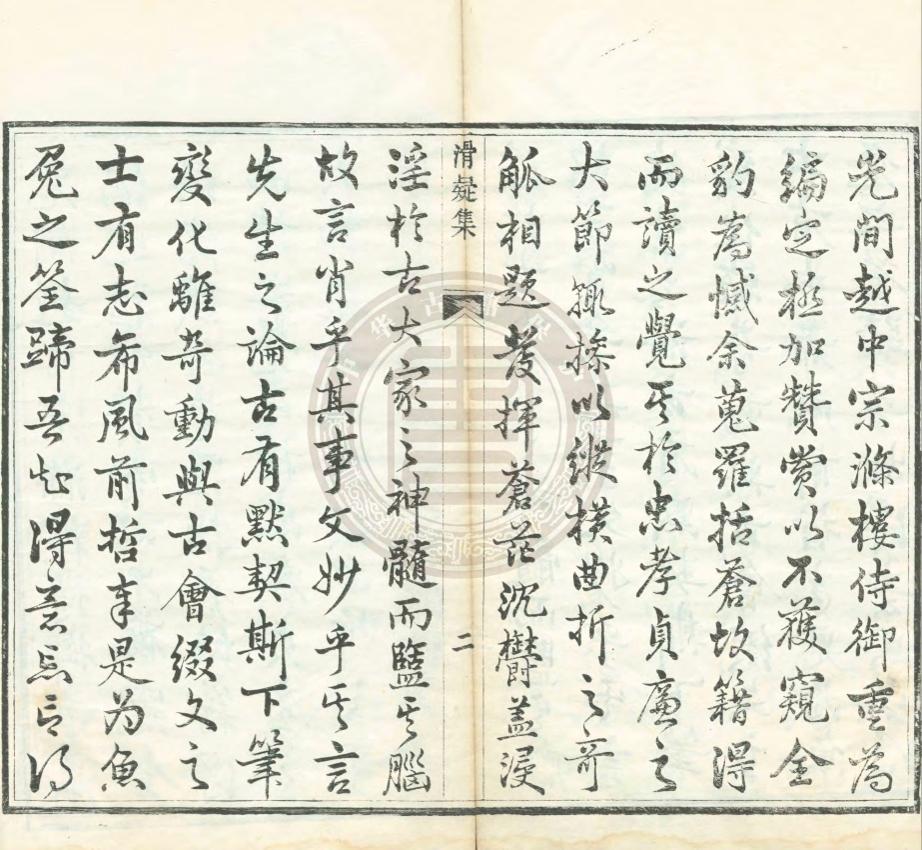 光間越中宗滌樓侍御重為
編定極加贊賞以不獲窺全
豹為憾余蒐羅括蒼故籍得
而讀之覺其於忠孝貞廉之
大節輒搽以縱横曲折之奇
觚相題發揮蒼茫沉欝蓋浸
滑疑集
二
淫於古大家之神髓而盬其腦
故言肖乎其事文妙乎其言
先生之論古有默契斯下筆
變化離奇動與古會綴文之
士有志希風前哲奉是為魚
兔之筌蹄吾知得意忘言得